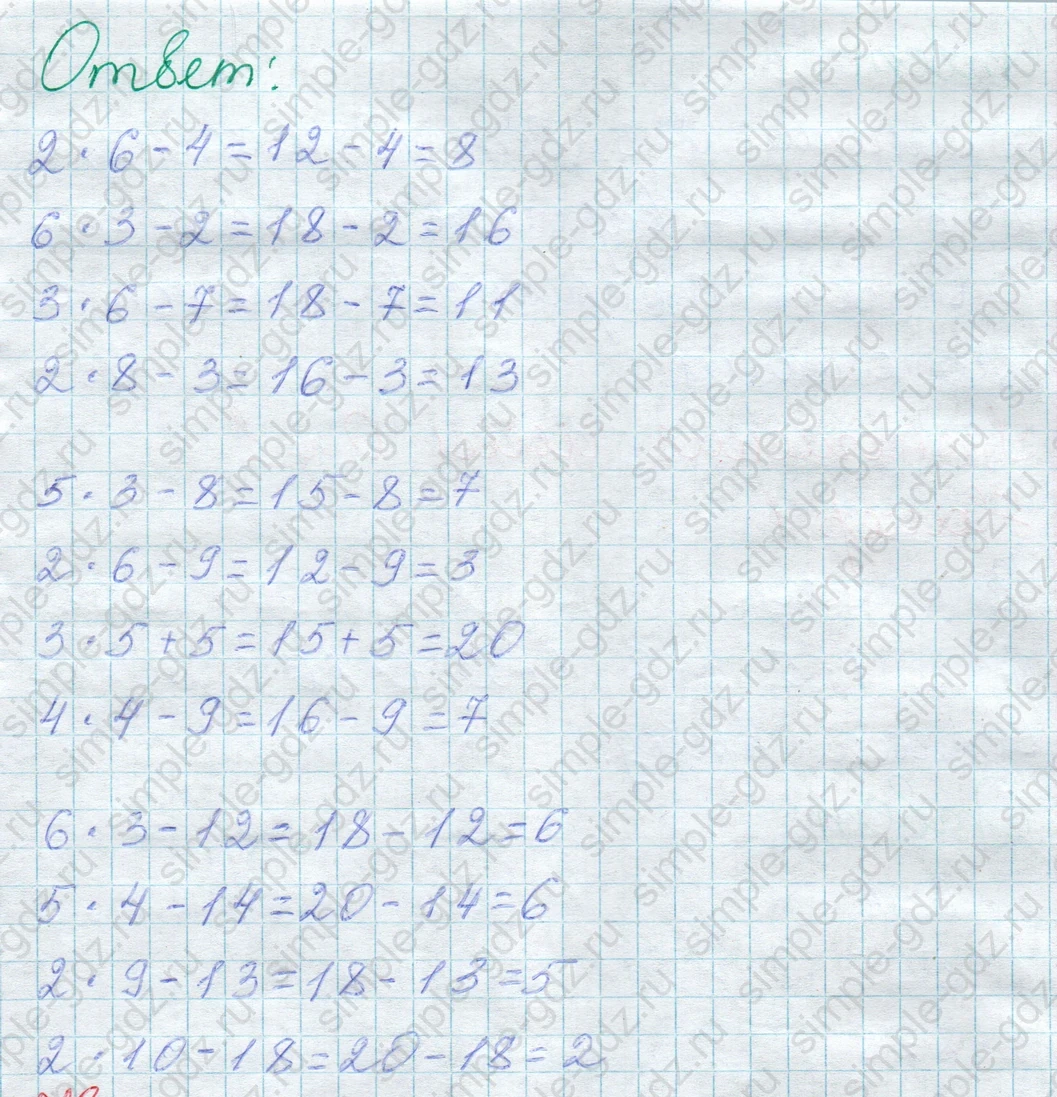 Ответ:
2·6-4=12-4=8
6·3-2=18-2=16
3·6-7=18-7=11
2·8-3=16-3=13
5·3-8=15-8=7
2·6-9=12-9=3
3·5+5=15+5=20
4·4-9=16-9=7
6·3-12=18-12=6
5·4-14=20-14=6
2·9-13=18-13=5
2·10-18=20-18=2
simple-gdz.ru